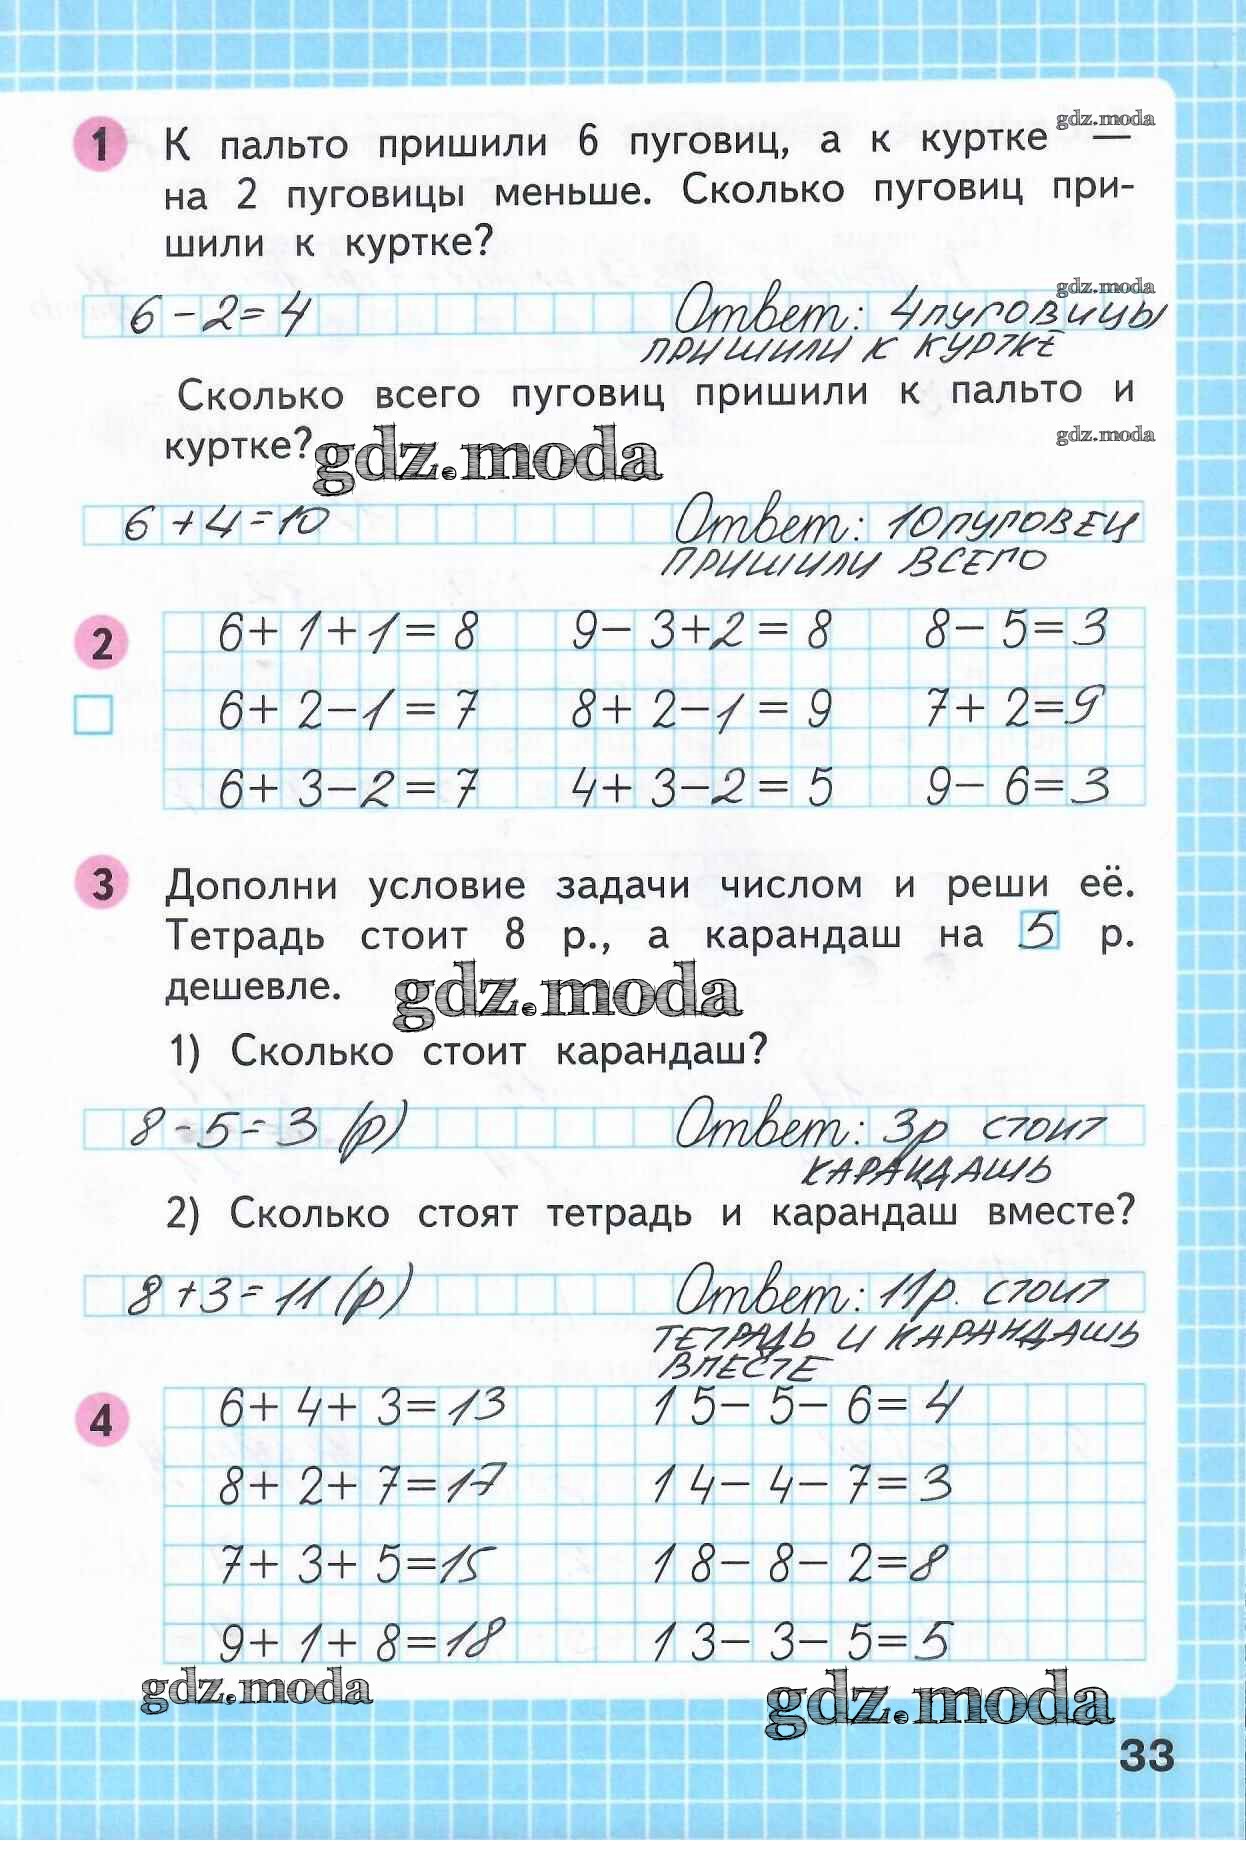 1 К пальто пришили 6 пуговиц, а к куртке —
gdz.moda
на 2 пуговицы меньше. Сколько пуговиц при-
шили к куртке?
gdz.moda
6 - 2 = 4 Ответ: 4 пуговицы
пришили к куртке
Сколько всего пуговиц пришили к пальто и
куртке?
gdz.moda
gdz.moda
6 + 4 = 10 Ответ: 10 пуговец
пришили всего
2 6 + 1 + 1 = 8 9 - 3 + 2 = 8 8 - 5 = 3
6 + 2 - 1 = 7 8 + 2 - 1 = 9 7 + 2 = 9
6 + 3 - 2 = 7 4 + 3 - 2 = 5 9 - 6 = 3
3 Дополни условие задачи числом и реши её.
Тетрадь стоит 8 р., а карандаш на 5 р.
дешевле.
gdz.moda
1) Сколько стоит карандаш?
8 - 5 = 3 (р) Ответ: 3р стоит
карандашь
2) Сколько стоят тетрадь и карандаш вместе?
8 + 3 = 11 (р) Ответ: 11р. стоит
тетрадь и карандашь
вместе
4 6 + 4 + 3 = 13 15 - 5 - 6 = 4
8 + 2 + 7 = 17 14 - 4 - 7 = 3
7 + 3 + 5 = 15 18 - 8 - 2 = 8
9 + 1 + 8 = 18 13 - 3 - 5 = 5
gdz.moda
gdz.moda
33